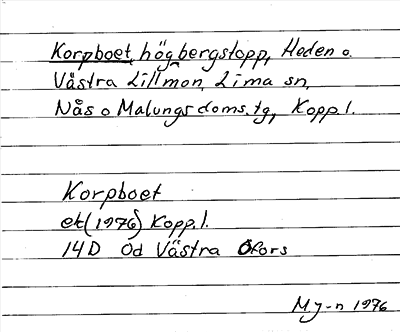 Korpboet, hög bergstopp, Heden o.
Västra Lillmon, Lima sn,
Nås o Malungs doms.tg, Kopp.l.
Korpboet
ek (1976) Kopp.l.
14D Od Västra Ofors
My-n 1976